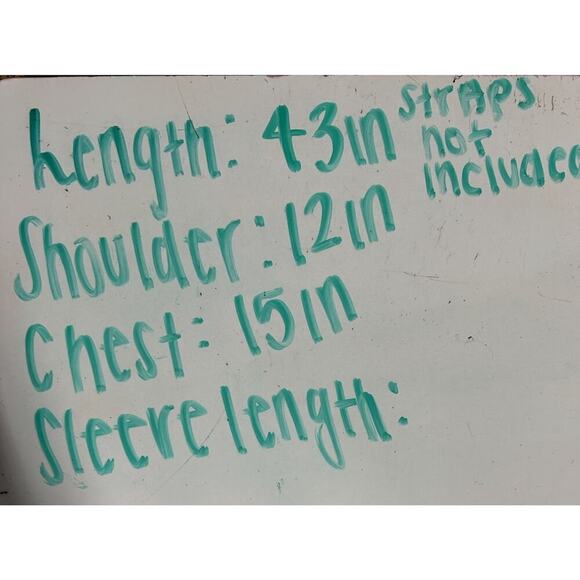 Length: 43in straps
not
included
Shoulder: 12in
Chest: 15in
Sleeve length: